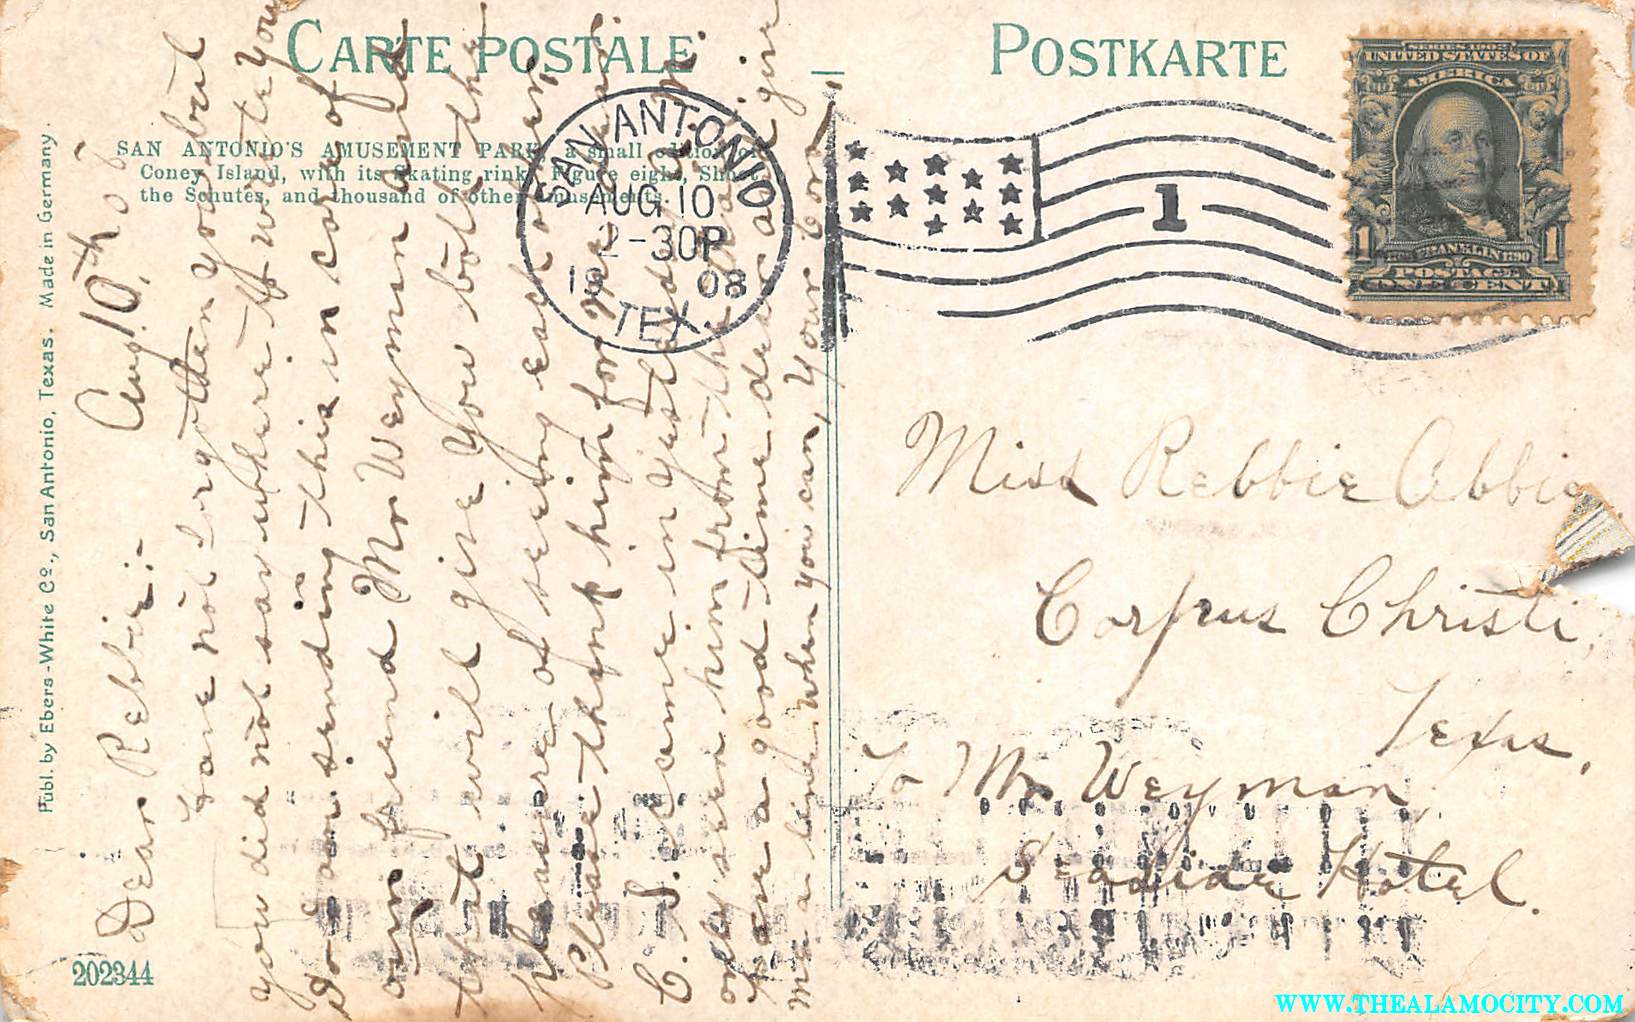 CARTE POSTALE
POSTKARTE
SAN ANTONIO'S AMUSEMENT PARK, a small edition of
Coney Island, with its skating rink, Figure eight, Shoot
the Schutes, and thousand of other amusements.
Publ. by Ebers-White Co., San Antonio, Texas. Made in Germany.
202344
SAN ANTONIO
AUG 10
2-30P
1908
TEX.
1
SERIES 1902
UNITED STATES OF
AMERICA
FRANKLIN
POSTAGE
1 1
ONE CENT
Aug. 10th 08
Dear Rebbie:-
Have not forgotten you but
you did not say where to write you
So am sending this in care of
our friend Mr Weyman and
tht will give you both the
pleasure of seeing each other.
Please thank him for me.
C. S. came in yesterday
only seen him from the
Have a good time dear and give
me a line when you can, Your
Miss Rebbie Abbie
Corpus Christi,
Texas,
To Mr Weyman,
Seaside Hotel.
WWW.THEALAMOCITY.COM